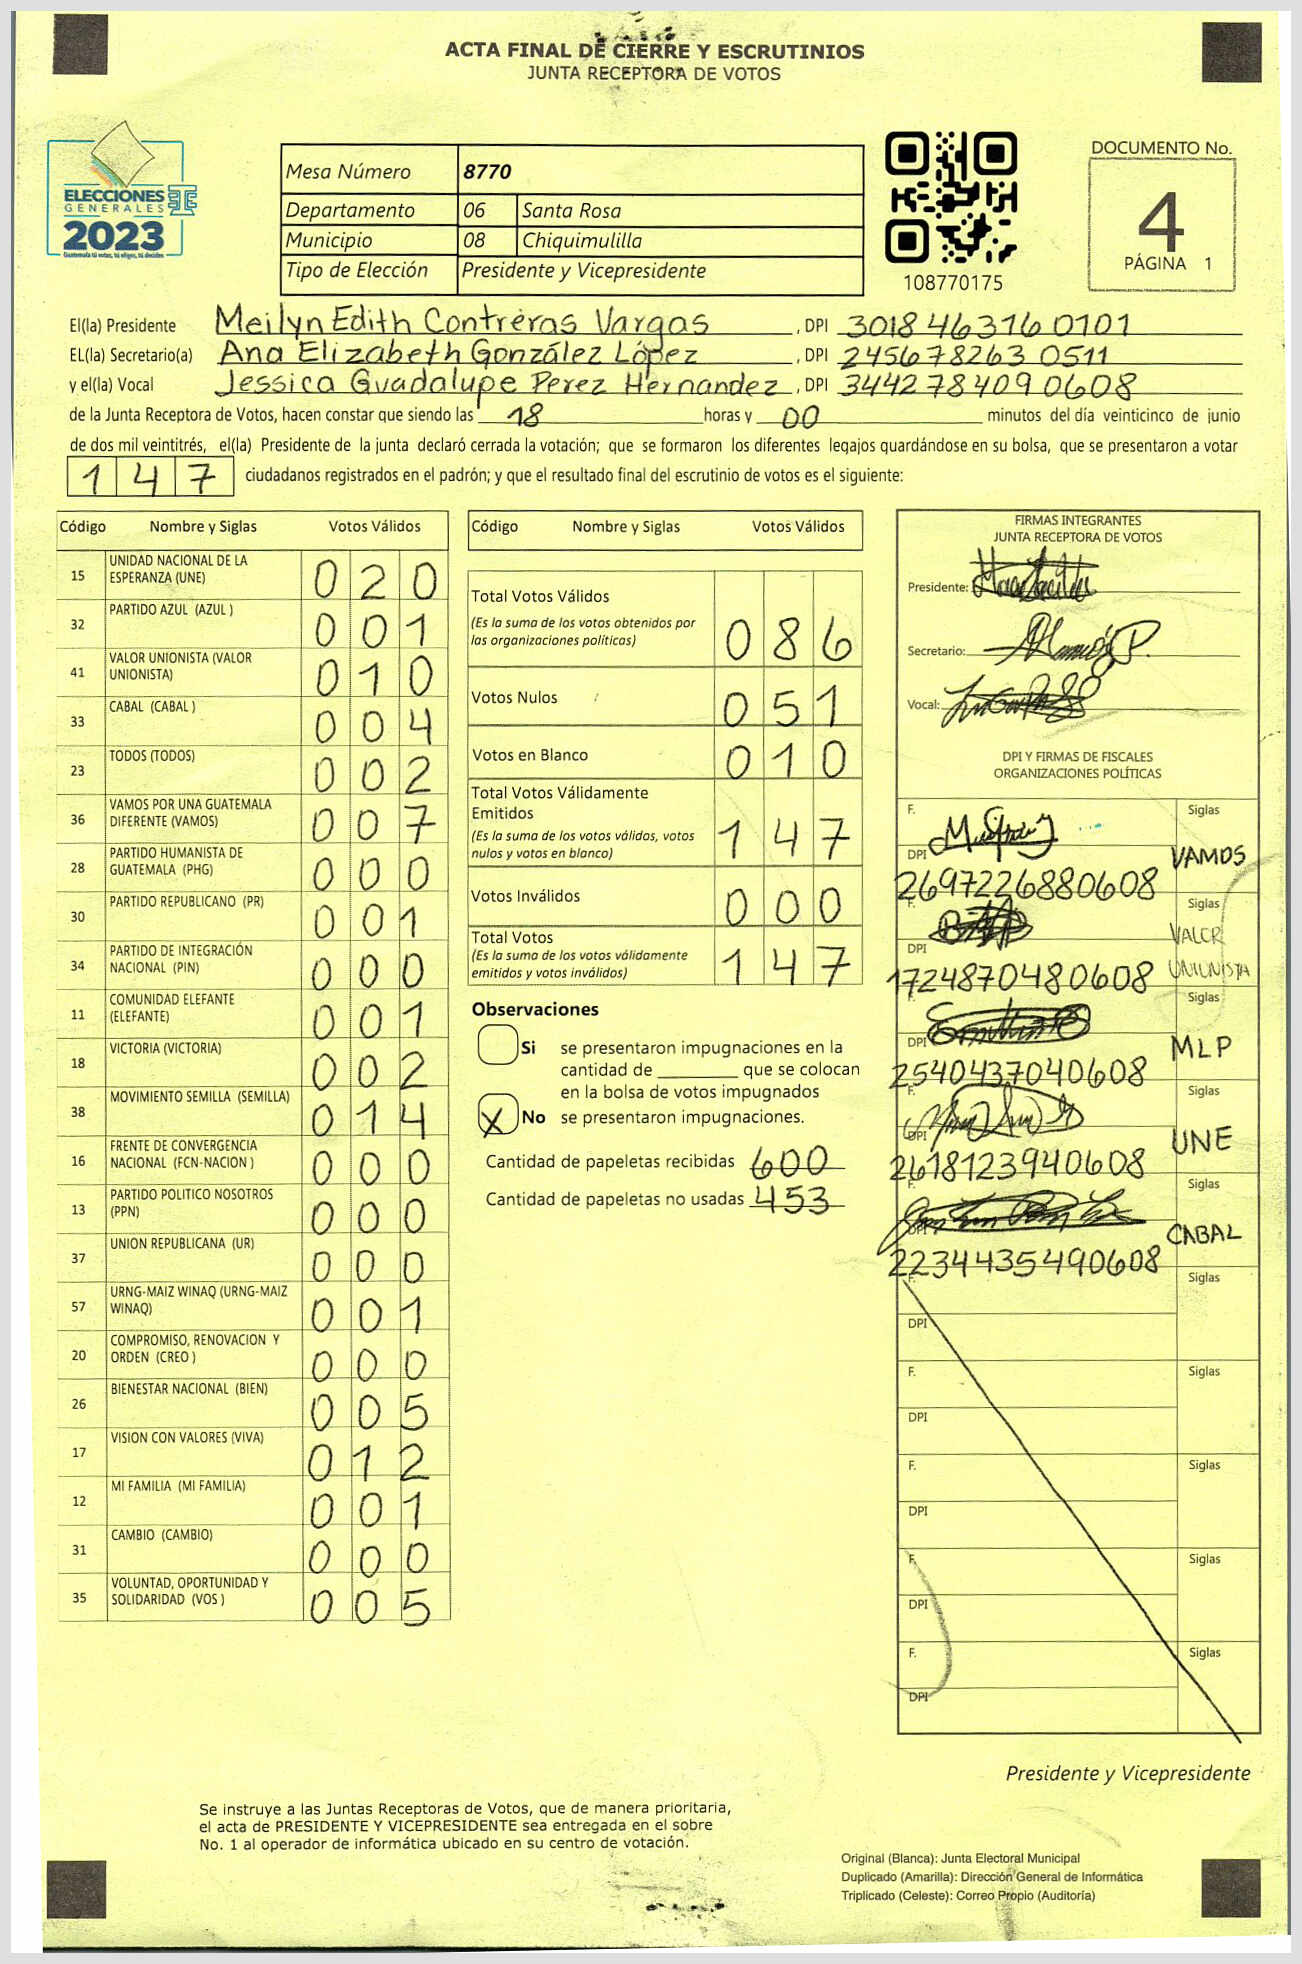 ACTA FINAL DE CIERRE Y ESCRUTINIOS
JUNTA RECEPTORA DE VOTOS
ELECCIONES
GENERALES
2023
Guatemala tú votas, tú eliges, tú decides
Mesa Número 8770
Departamento 06 Santa Rosa
Municipio 08 Chiquimulilla
Tipo de Elección Presidente y Vicepresidente
108770175
DOCUMENTO No.
4
PÁGINA 1
El(la) Presidente Meilyn Edith Contreras Vargas , DPI 3018 46316 0101
EL(la) Secretario(a) Ana Elizabeth González López , DPI 245678263 0511
y el(la) Vocal Jessica Guadalupe Perez Hernandez , DPI 344278409 0608
de la Junta Receptora de Votos, hacen constar que siendo las 18 horas y 00 minutos del día veinticinco de junio
de dos mil veintitrés, el(la) Presidente de la junta declaró cerrada la votación; que se formaron los diferentes legajos quardándose en su bolsa, que se presentaron a votar
1 4 7 ciudadanos registrados en el padrón; y que el resultado final del escrutinio de votos es el siguiente:
Código Nombre y Siglas Votos Válidos
15 UNIDAD NACIONAL DE LA ESPERANZA (UNE) 0 2 0
32 PARTIDO AZUL (AZUL ) 0 0 1
41 VALOR UNIONISTA (VALOR UNIONISTA) 0 1 0
33 CABAL (CABAL ) 0 0 4
23 TODOS (TODOS) 0 0 2
36 VAMOS POR UNA GUATEMALA DIFERENTE (VAMOS) 0 0 7
28 PARTIDO HUMANISTA DE GUATEMALA (PHG) 0 0 0
30 PARTIDO REPUBLICANO (PR) 0 0 1
34 PARTIDO DE INTEGRACIÓN NACIONAL (PIN) 0 0 0
11 COMUNIDAD ELEFANTE (ELEFANTE) 0 0 1
18 VICTORIA (VICTORIA) 0 0 2
38 MOVIMIENTO SEMILLA (SEMILLA) 0 1 4
16 FRENTE DE CONVERGENCIA NACIONAL (FCN-NACION ) 0 0 0
13 PARTIDO POLITICO NOSOTROS (PPN) 0 0 0
37 UNION REPUBLICANA (UR) 0 0 0
57 URNG-MAIZ WINAQ (URNG-MAIZ WINAQ) 0 0 1
20 COMPROMISO, RENOVACION Y ORDEN (CREO ) 0 0 0
26 BIENESTAR NACIONAL (BIEN) 0 0 5
17 VISION CON VALORES (VIVA) 0 1 2
12 MI FAMILIA (MI FAMILIA) 0 0 1
31 CAMBIO (CAMBIO) 0 0 0
35 VOLUNTAD, OPORTUNIDAD Y SOLIDARIDAD (VOS ) 0 0 5
Código Nombre y Siglas Votos Válidos
Total Votos Válidos
(Es la suma de los votos obtenidos por
las organizaciones políticas) 0 8 6
Votos Nulos 0 5 1
Votos en Blanco 0 1 0
Total Votos Válidamente
Emitidos
(Es la suma de los votos válidos, votos
nulos y votos en blanco) 1 4 7
Votos Inválidos 0 0 0
Total Votos
(Es la suma de los votos válidamente
emitidos y votos inválidos) 1 4 7
Observaciones
Si se presentaron impugnaciones en la
cantidad de ________ que se colocan
en la bolsa de votos impugnados
X No se presentaron impugnaciones.
Cantidad de papeletas recibidas 600
Cantidad de papeletas no usadas 453
FIRMAS INTEGRANTES
JUNTA RECEPTORA DE VOTOS
Presidente:
Secretario:
Vocal:
DPI Y FIRMAS DE FISCALES
ORGANIZACIONES POLÍTICAS
F. Siglas
DPI VAMOS
2697226880608
F. Siglas
DPI VALOR
1724870480608 UNIONISTA
F. Siglas
DPI MLP
2540437040608
Siglas
DPI UNE
2618123940608
F. Siglas
DPI CABAL
2234435490608
F. Siglas
DPI
F. Siglas
DPI
F. Siglas
DPI
F. Siglas
DPI
F. Siglas
DPI
Presidente y Vicepresidente
Se instruye a las Juntas Receptoras de Votos, que de manera prioritaria,
el acta de PRESIDENTE Y VICEPRESIDENTE sea entregada en el sobre
No. 1 al operador de informática ubicado en su centro de votación.
Original (Blanca): Junta Electoral Municipal
Duplicado (Amarilla): Dirección General de Informática
Triplicado (Celeste): Correo Propio (Auditoría)